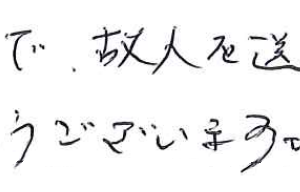 で、故人を送
うございます。